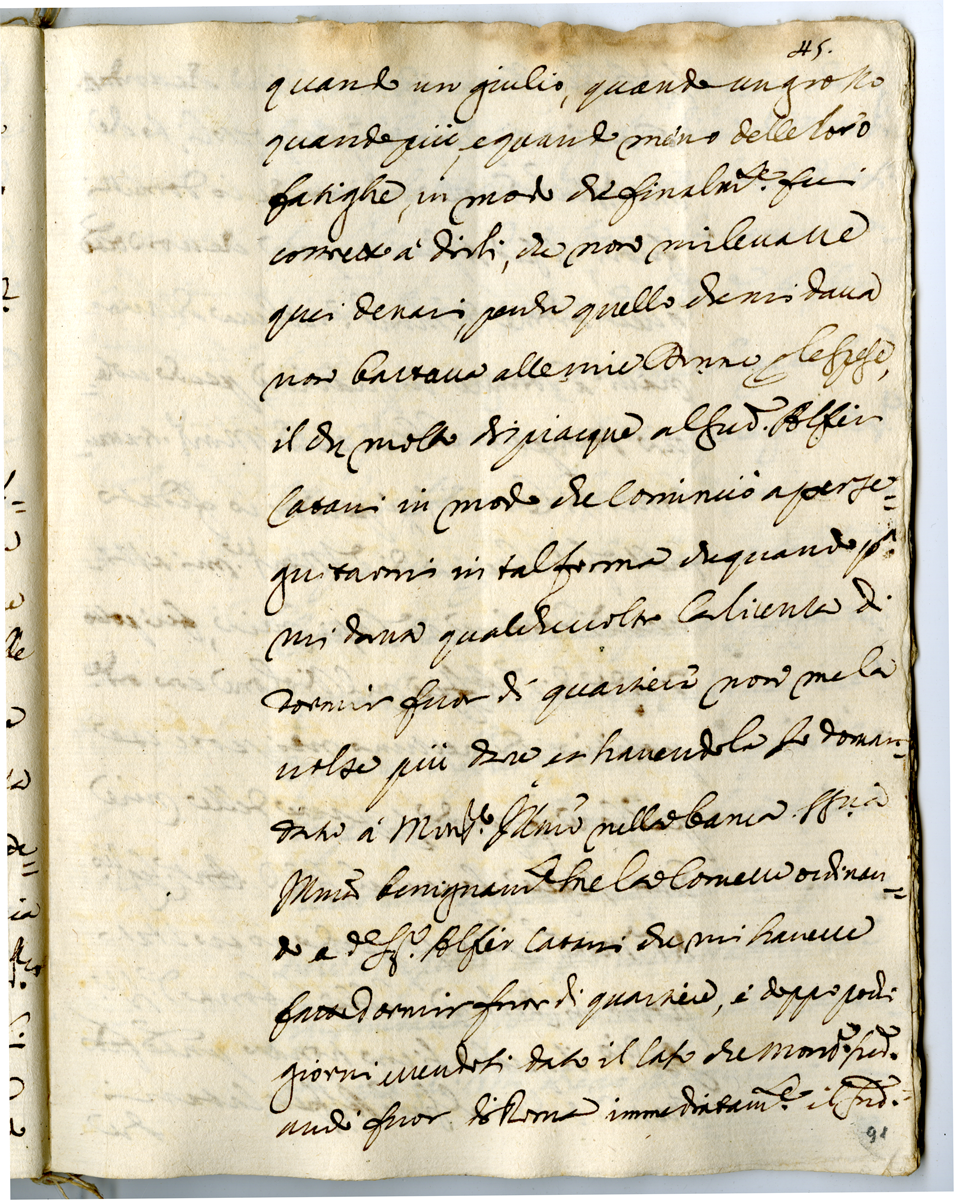 45.
quando un giulio, quando un grosso
quando più, e quando meno delle loro
fatighe, in modo che finalmte. fui
costretto à dirli, che non mi levasse
quei denari, perche quello che mi dava
non bastava alle mie Donne p le spese,
il che molto dispiacque al sud. Alfier
Catani in modo che cominciò a perse=
guitarmi in tal forma che quando pa.
mi dava qualche volta la licenza di
dormir fuor di quartiere non me la
volse più dare et havendola Io doman=
data à Monsre. Illmo nella banca. SSria
Illma benignamte me la concesse ordinan=
do a do. Sr. Alfier Catani che mi havesse
fatto dormir fuor di quartiere, é doppo pochi
giorni essendosi dato il caso che Monsr. sud.
andò fuor di Roma immediatamte. il sud.
91